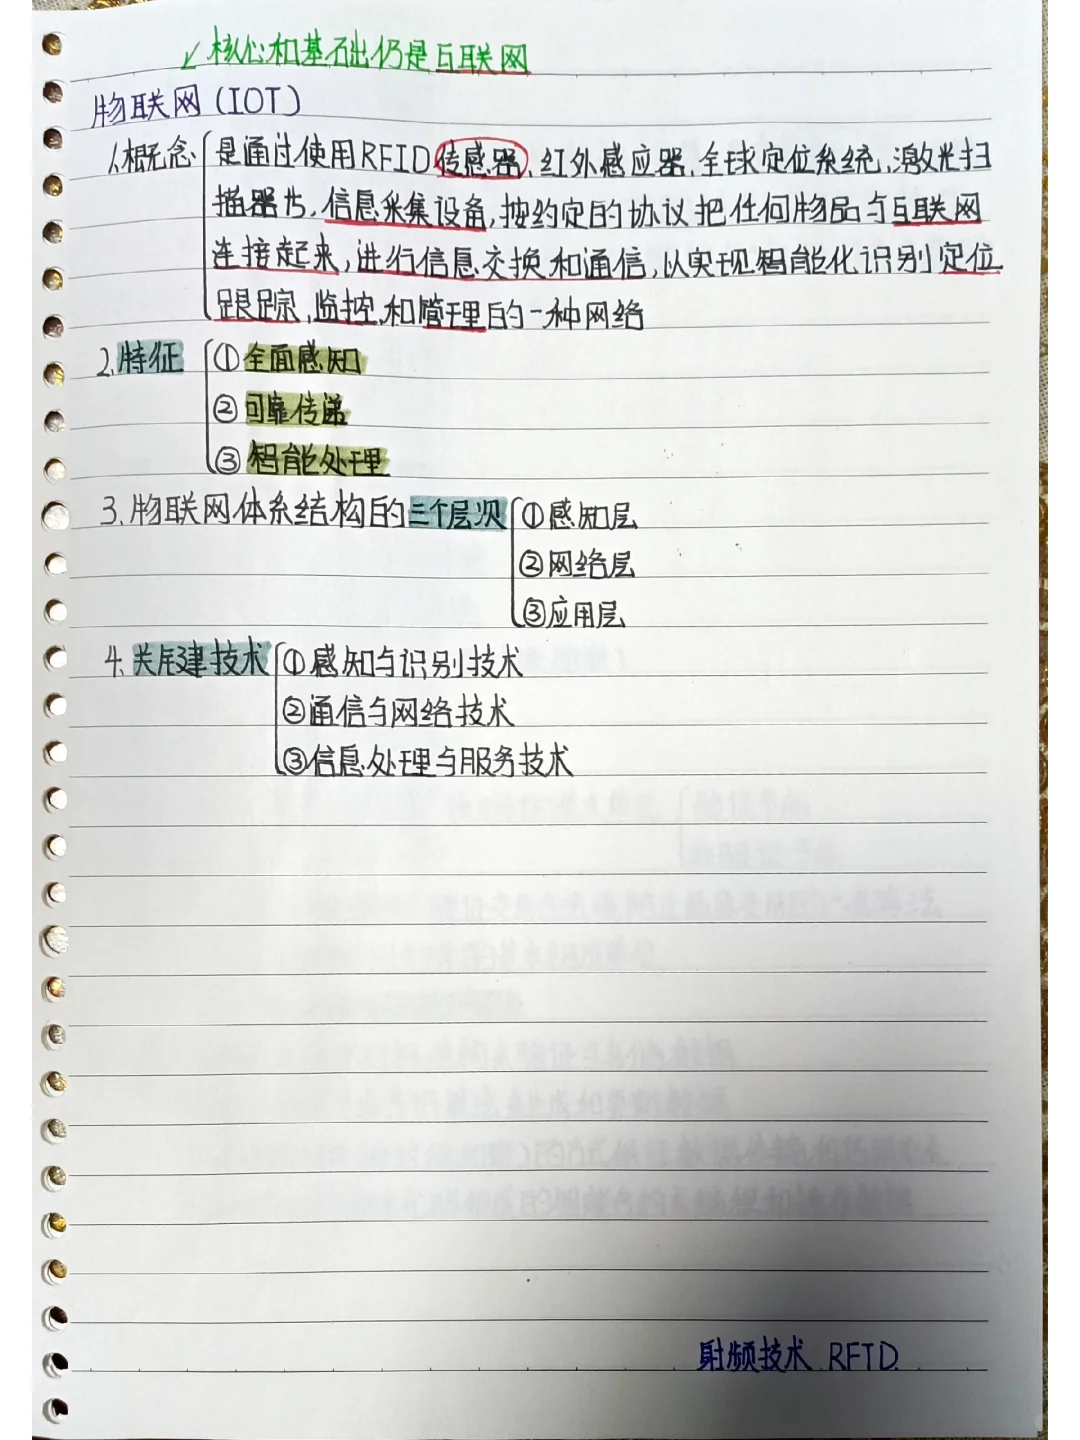 ↙核心和基础仍是互联网
物联网(IOT)
1.概念 是通过使用RFID传感器、红外感应器、全球定位系统、激光扫
描器等,信息采集设备,按约定的协议把任何物品与互联网
连接起来,进行信息交换和通信,以实现智能化识别定位
跟踪、监控、和管理的一种网络
2.特征 ①全面感知
②可靠传递
③智能处理
3.物联网体系结构的三个层次 ①感知层
②网络层
③应用层
4.关键技术 ①感知与识别技术
②通信与网络技术
③信息处理与服务技术
射频技术 RFID